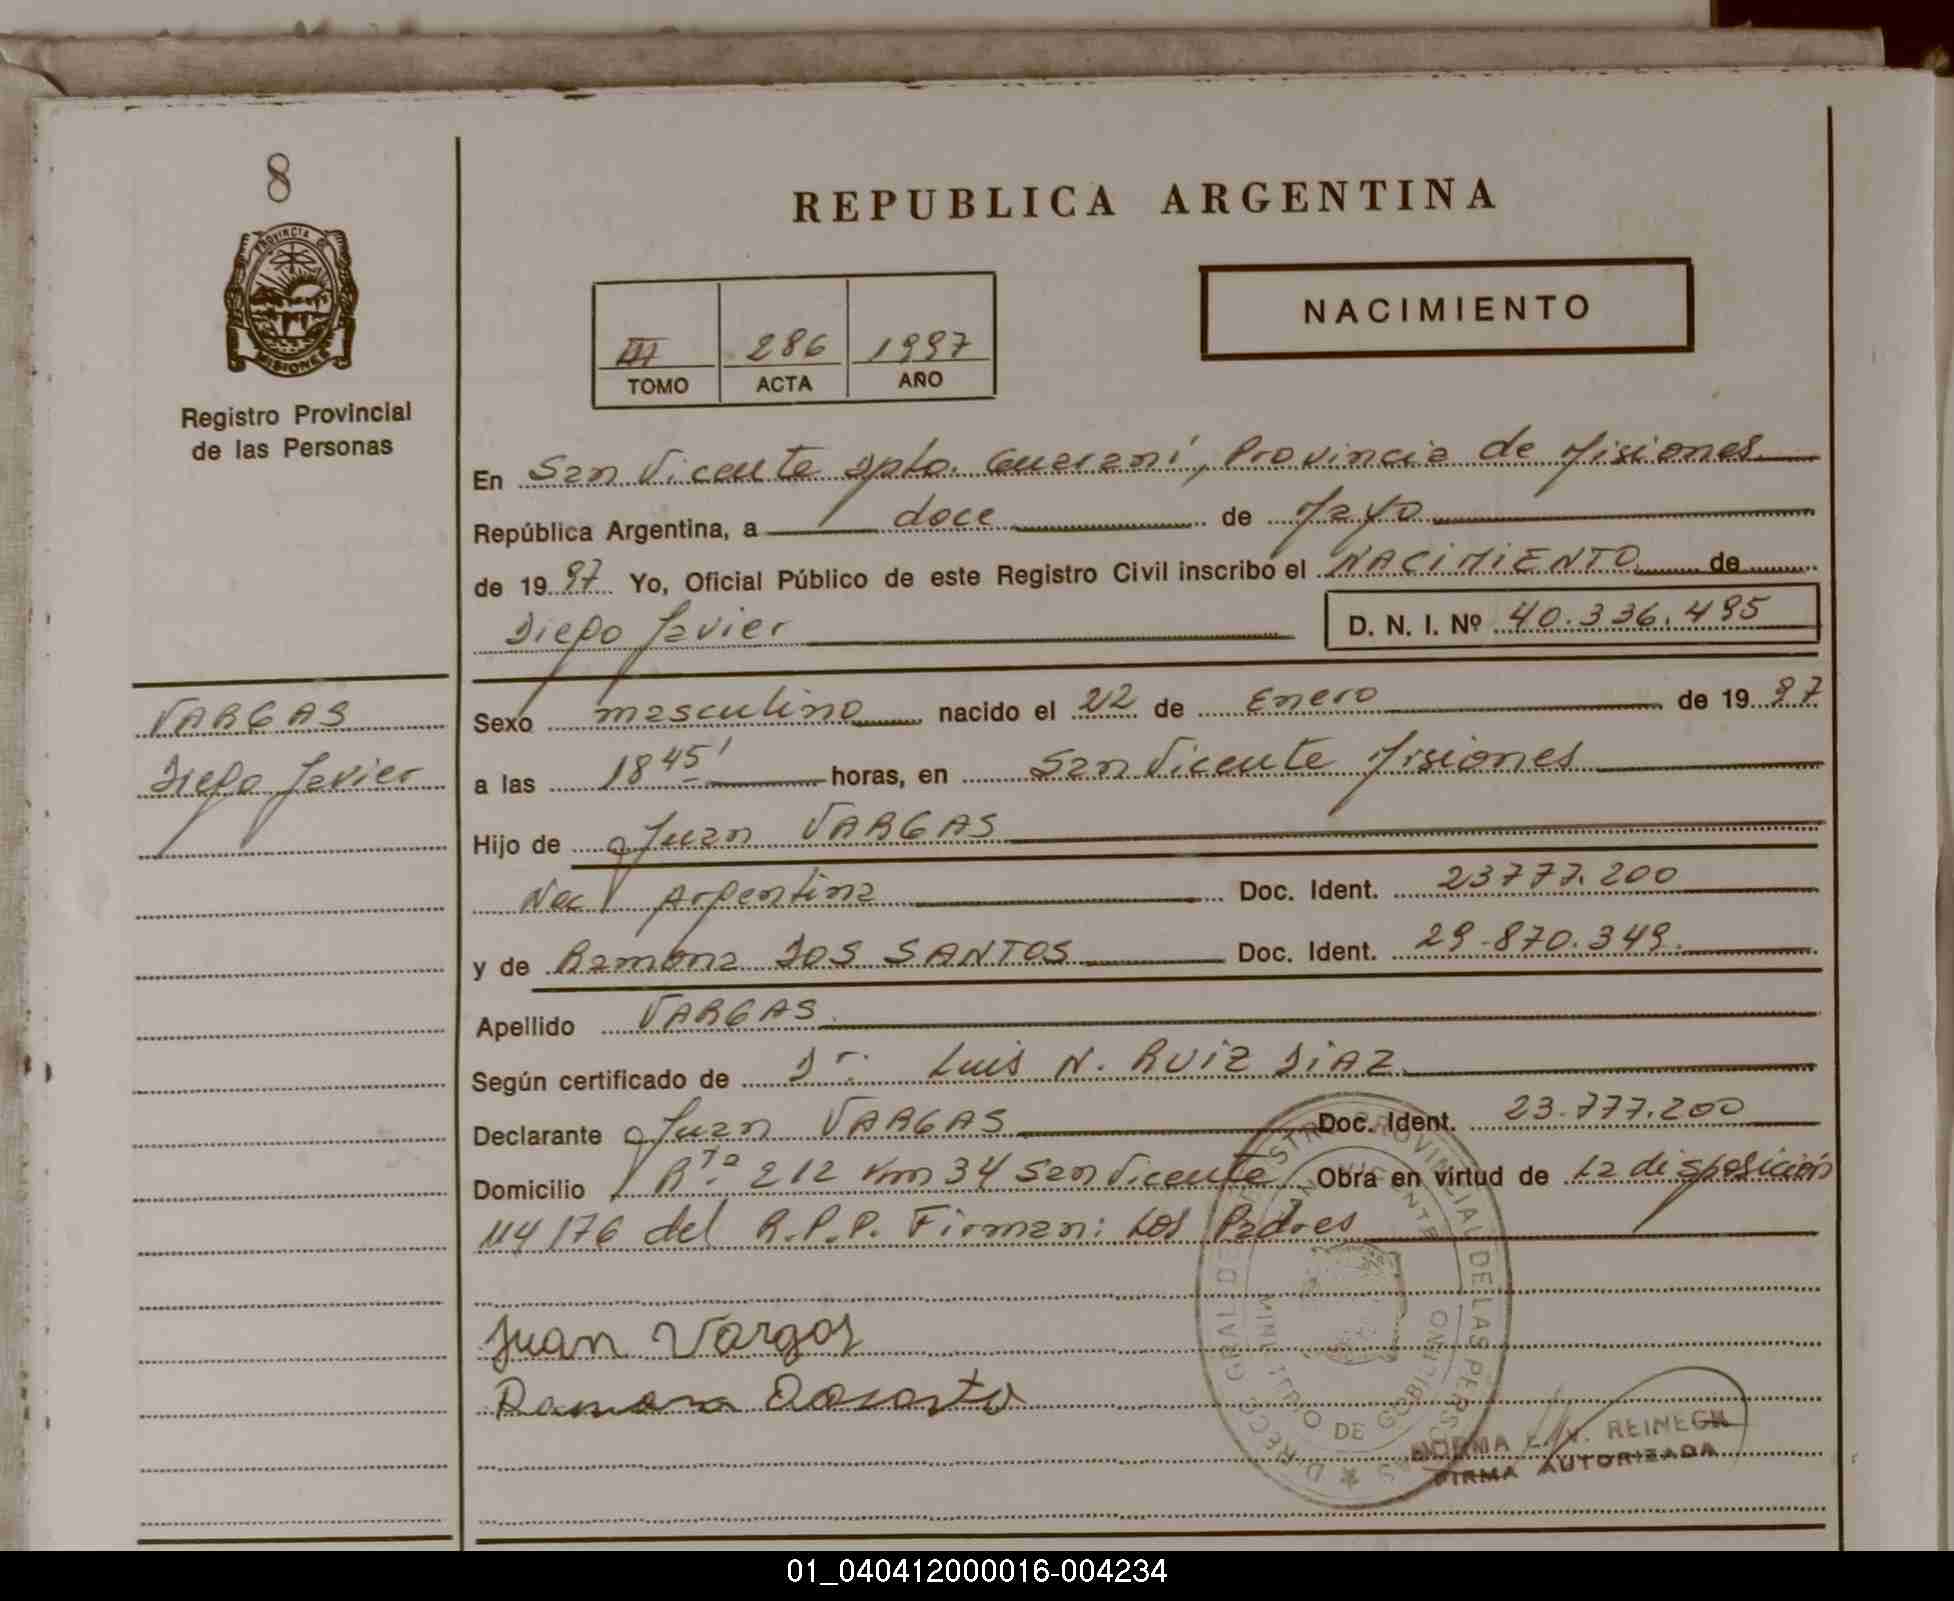 8
PROVINCIA DE
MISIONES
Registro Provincial
de las Personas
VARGAS
Diego Javier
REPUBLICA ARGENTINA
III 286 1997
TOMO ACTA AÑO
NACIMIENTO
En San Vicente Dpto. Guaraní, Provincia de Misiones
República Argentina, a doce de Mayo
de 1997 Yo, Oficial Público de este Registro Civil inscribo el NACIMIENTO de
Diego Javier D. N. I. Nº 40.336.495
Sexo masculino nacido el 22 de Enero de 1997
a las 18 45' horas, en San Vicente Misiones
Hijo de Juan VARGAS
Nac Argentina Doc. Ident. 23777.200
y de Ramona DOS SANTOS Doc. Ident. 29.870.349.
Apellido VARGAS
Según certificado de Dr. Luis N. RUIZ DIAZ
Declarante Juan VARGAS Doc. Ident. 23.777.200
Domicilio Rta. 212 Km 34 San Vicente Obra en virtud de la disposición
114/76 del R.P.P. Firman: Los Padres
Juan Vargas
Ramona
REGISTRO PROVINCIAL DE LAS PERSONAS
SAN VICENTE
DE GOBIERNO
NORMA REINECK
FIRMA AUTORIZADA
01_040412000016-004234